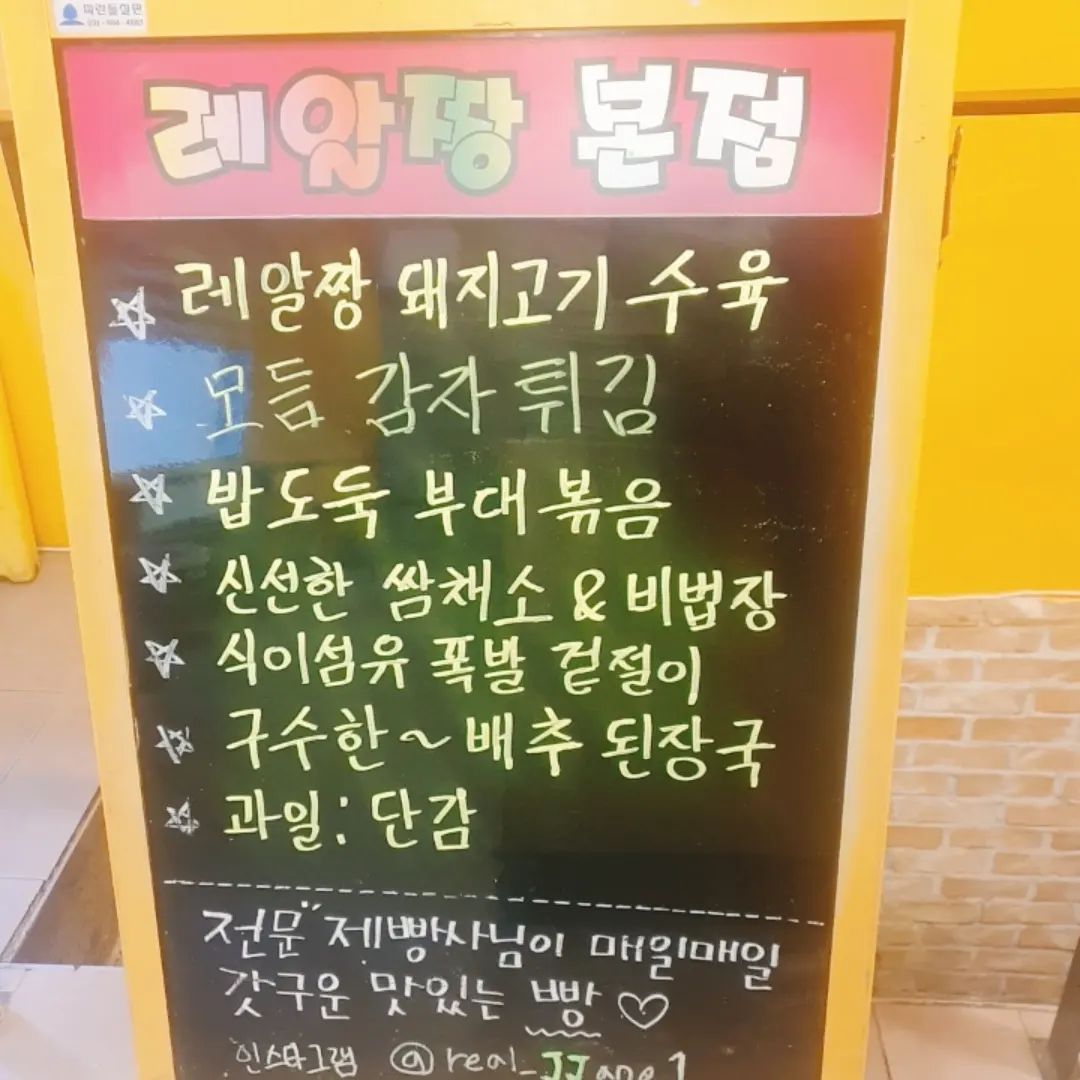 레알짱 본점
레알짱 돼지고기 수육
모듬 감자 튀김
밥도둑 부대볶음
신선한 쌈채소 & 비법장
식이섬유 폭발 겉절이
구수한~배추 된장국
과일: 단감
전문 제빵사님이 매일매일
갓구운 맛있는 빵♡
인스타그램